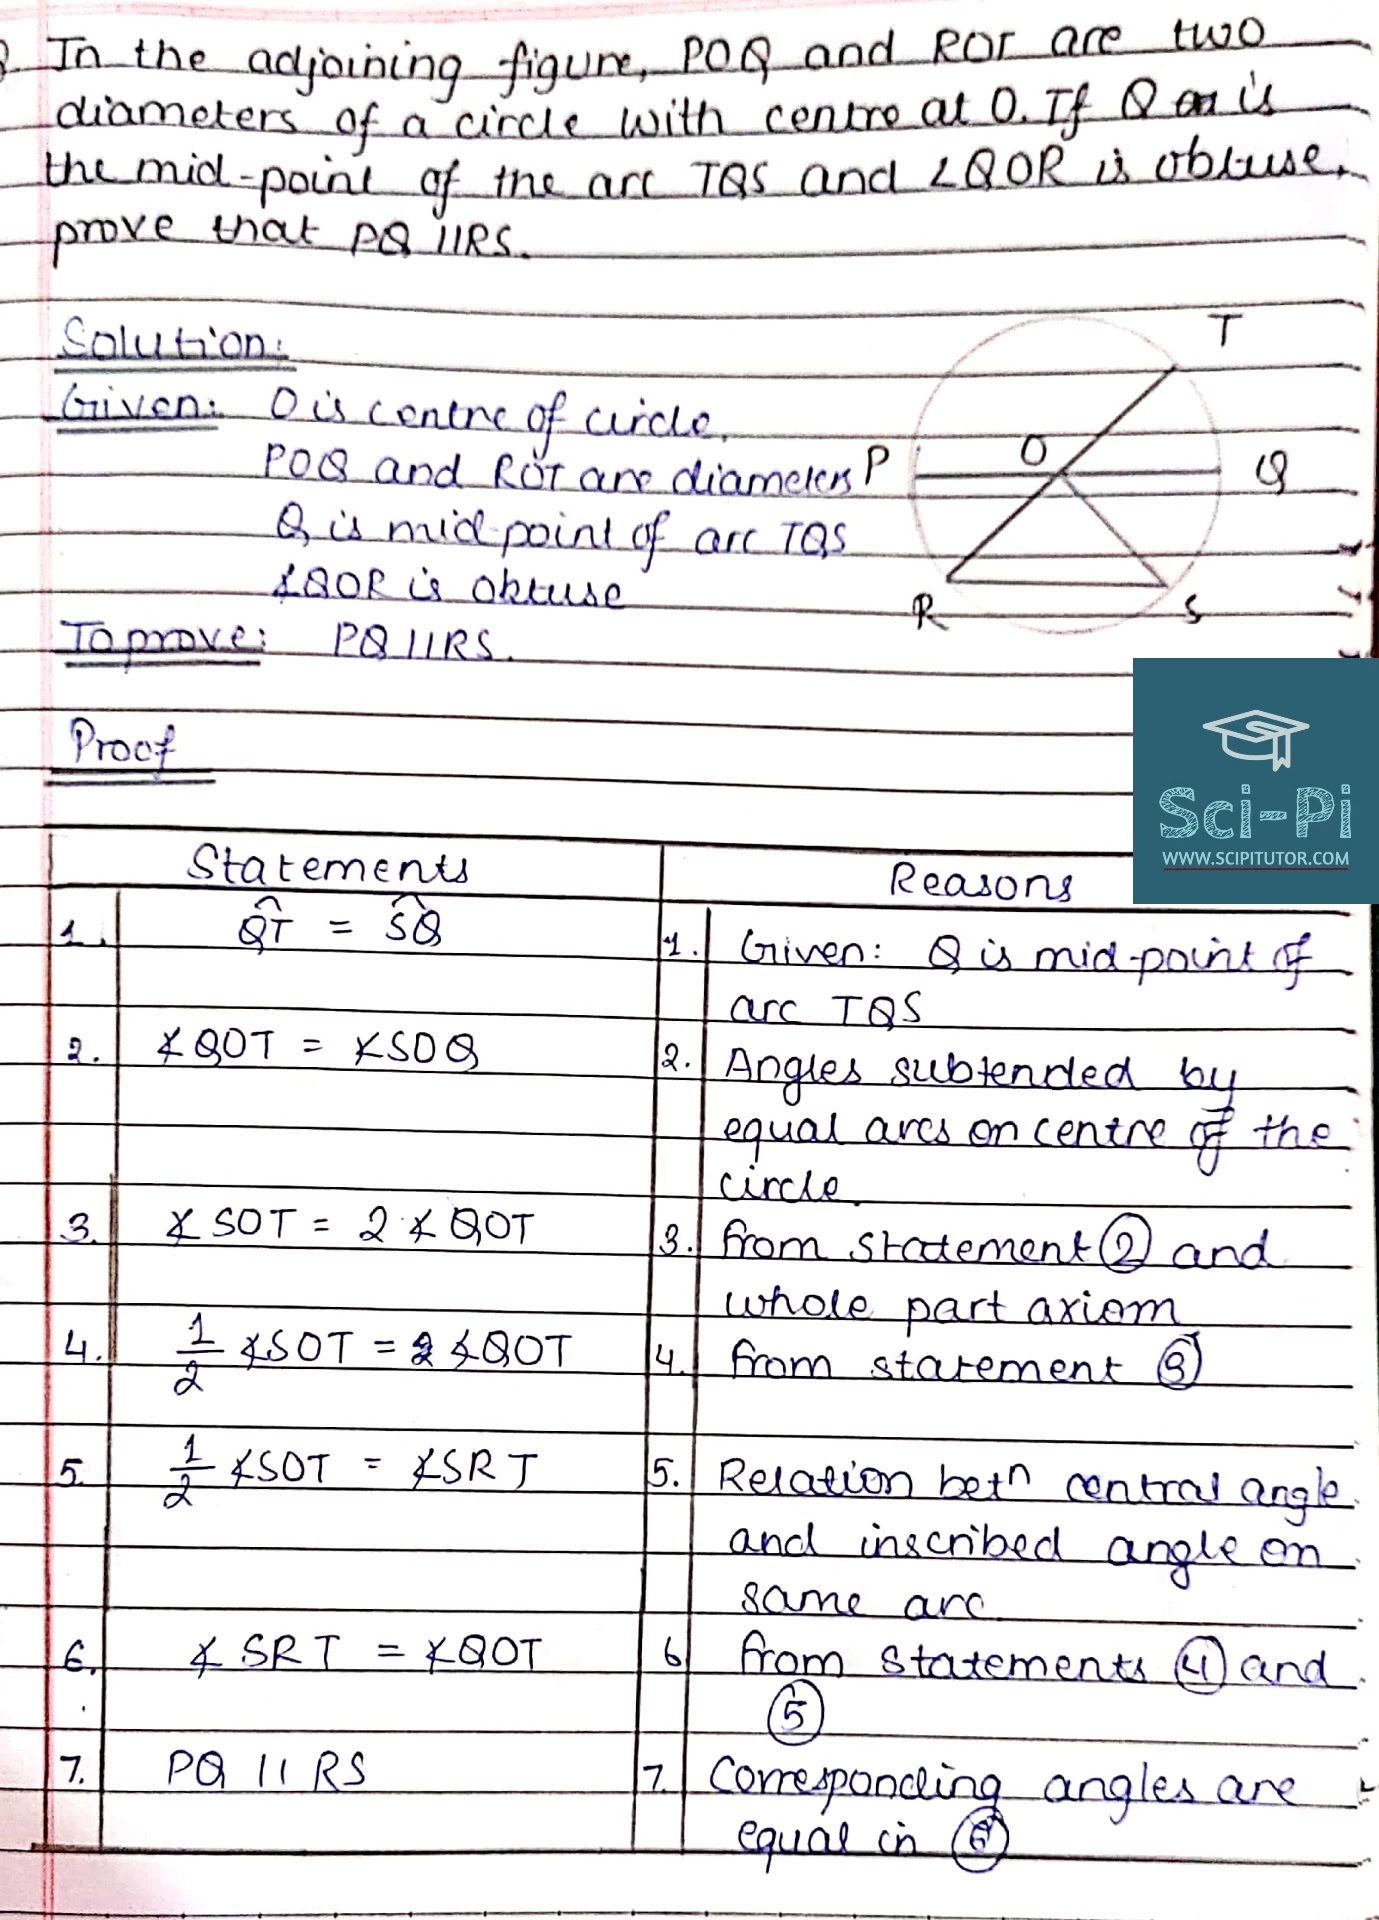 In the adjoining figure, POQ and ROT are two
diameters of a circle with centre at O. If Q is
the mid-point of the arc TQS and ∠QOR is obtuse,
prove that PQ || RS.
Solution:
T
Given: O is centre of circle.
POQ and ROT are diameters
P
O
Q
Q is mid-point of arc TQS
∡QOR is obtuse
R
S
To prove: PQ || RS.
Proof
Sci-Pi
WWW.SCIPITUTOR.COM
Statements
Reasons
1. Q͡T = S͡Q
1. Given: Q is mid-point of
arc TQS
2. ∡QOT = ∡SOQ
2. Angles subtended by
equal arcs on centre of the
circle.
3. ∡SOT = 2 ∡QOT
3. from statement ② and
whole part axiom
4. 1/2 ∡SOT = ∡QOT
4. from statement ③
5. 1/2 ∡SOT = ∡SRT
5. Relation betⁿ central angle
and inscribed angle on
same arc
6. ∡SRT = ∡QOT
6 from statements ④ and
⑤
7. PQ || RS
7. Corresponding angles are
equal in ⑥